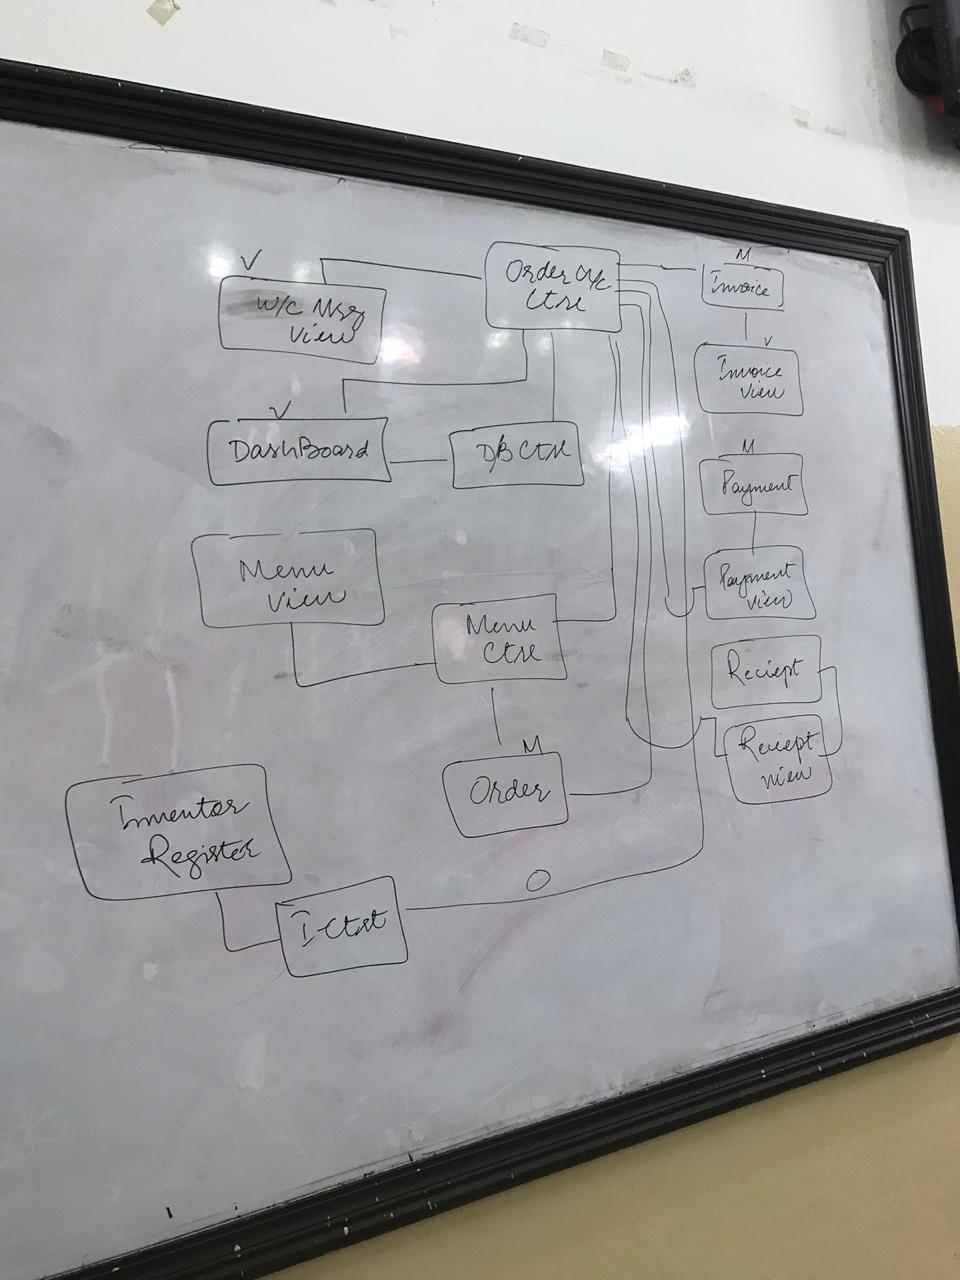 V
W/C Msg
View
Order
Ctrl
M
Invoice
V
Invoice
View
V
DashBoard
D/B Ctrl
M
Payment
Payment
View
Menu
View
Menu
Ctrl
Reciept
Reciept
View
M
Order
Inventor
Register
I-Ctrl